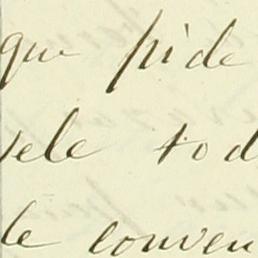 que pide
sele tod
le conven